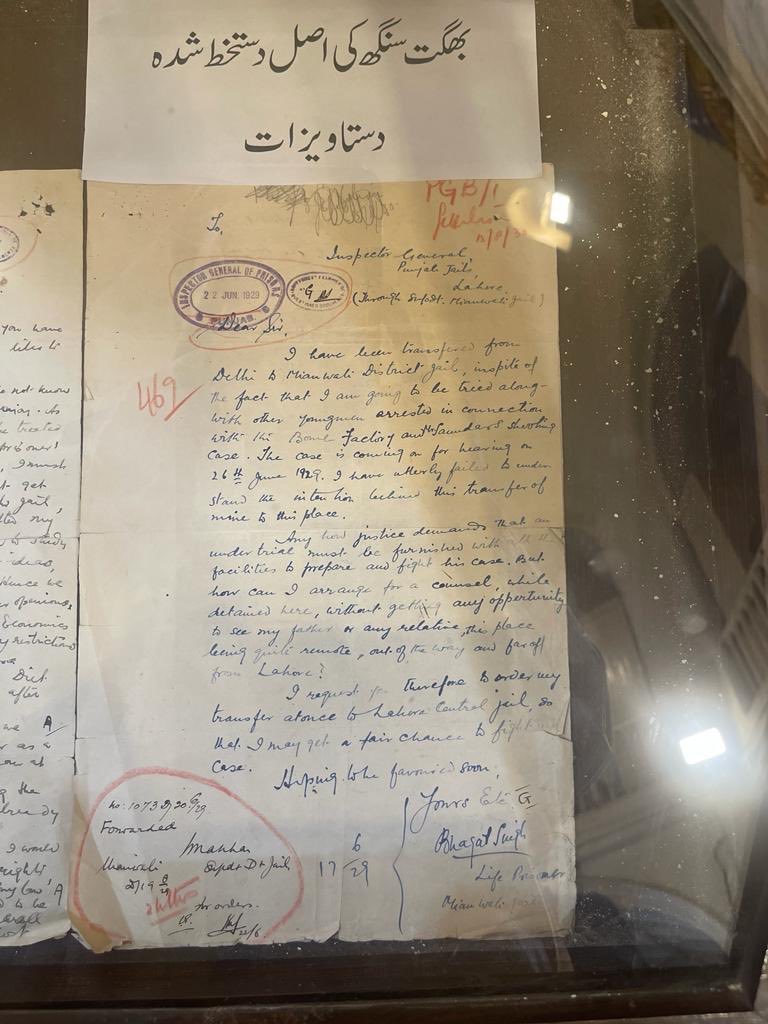 بھگت سنگھ کی اصل دستخط شدہ
دستاویزات
you have
likes to
not know
As
treated
I must
get
jail,
my
to study
ideas,
we
opinions,
Economics
restrictions
Diet
after
A
or as a
at
the
already
I would
rights
law, A
to be
To,
Inspector General,
Punjab Jails,
Lahore
(Through Supdt. Mianwali Jail)
INSPECTOR GENERAL OF PRISONS
22 JUN. 1929
PUNJAB.
Dear Sir,
469
I have been transferred from
Delhi to Mianwali District Jail, inspite of
the fact that I am going to be tried along-
with other youngmen arrested in connection
with the Bomb Factory and Saundars shooting
case. The case is coming on for hearing on
26th June 1929. I have utterly failed to under
stand the intention behind this transfer of
mine to this place.
Any how justice demands that an
under trial must be furnished with all the
facilities to prepare and fight his case. But
how can I arrange for a counsel, while
detained here, without getting any opportunity
to see my father or any relative, this place
being quite remote, out of the way and far off
from Lahore?
I request you therefore to order my
transfer atonce to Lahore Central jail, so
that I may get a fair chance to fight
case.
Hoping to be favoured soon,
Yours Etc
Bhagat Singh
Life Prisoner
Mianwali Jail
17 6/29
Forwarded
Mianwali
Supdt Dt Jail
for orders.
22/6